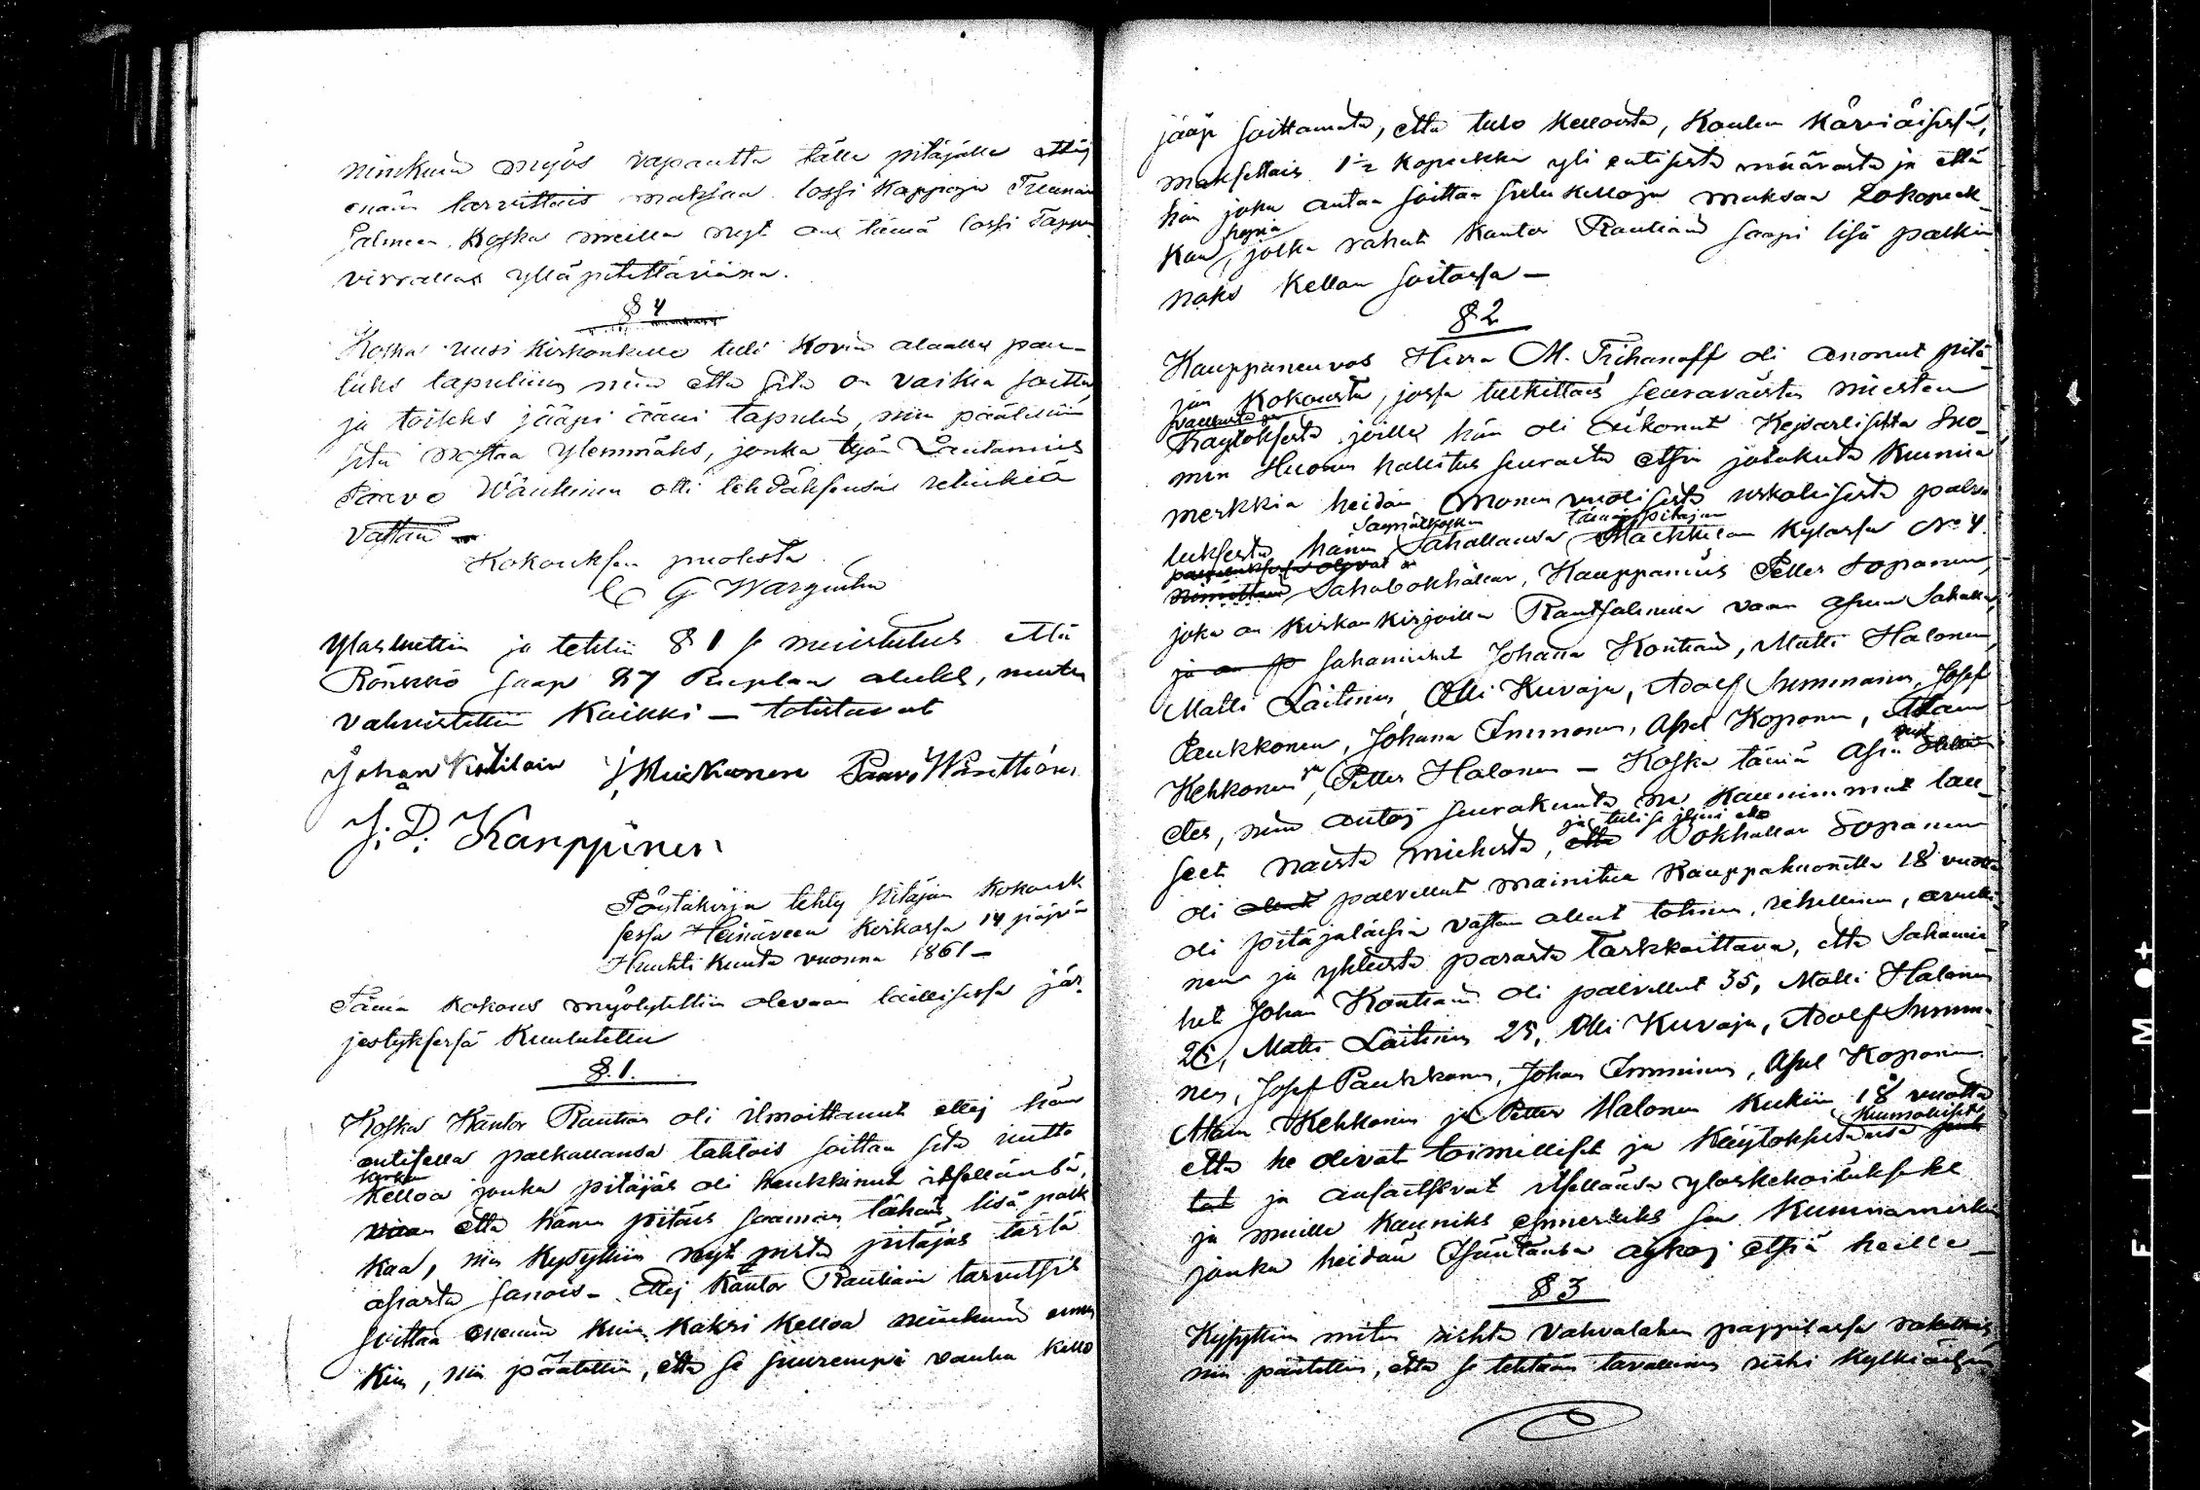 niinkuin myös vapautta tälle pitäjälle ettej
enäm tarvittais maksaa lossi kappoja
Palmeen. Koska meillä nyt on tämä lossi Tappu
virrallas ylläpitettävänä.
§ 4
Koska uusi kirkonkello tuli kovin alaallas pan-
tuks tapuliin niin että sitä on vaikia soittaa
ja toiseks jääpi ääni tapuliin, niin päätettiin
sitä nostaa ylemmäks, jonka työn Lautamies
Paavo Wänttinen otti tehdäksensä
vastaan
Kokouksen puolesta
C G Wargentin
Ylösluettiin ja tehtiin § 1 s muistutus että
Rönkkö saap 87 Ruplaa aluks, muuten
vahvistettiin kaikki — todistavat
Johan Kotilain J. Miettinen Paavo Wänttinen
J. P. Karppinen
Pöytäkirja tehty pitäjän kokouk
sessa Heinäveen kirkossa 14 päjvä
Huhti kuuta vuonna 1861 —
Tämä kokous myöntyttiin olevaan laillisessa jär-
jestyksessä kuulutettu
§. 1.
Koska Kantor Rautiain oli ilmoittanut ettej hän
entisellä palkallansa tahtois soittaa sitä uutta
kirkon
kelloa jonka pitäjäs oli hankkinut itsellänsä,
vaan että hänen pitäis saaman tähän lisä palk
kaa, niin kysyttiin nyt mitä pitäjäs tästä
asiasta sanois — Ettej Kantor Rautiain tarvitsis
soittaa enemmän kuin kaksi kelloa niinkuin ennen
kin, niin päätettiin, että se suurempi vanha kello
jääp soittamata, että tulo kelloista, koulun kärviäisessä,
maksettais 1½ kopeekka yli entisestä määrästä ja että
hän joka antaa soittaa sielu kelloja maksaa 20 kopeek-
hopia
kaa, jotka rahat Kantor Rautiain saapi lisä palkin
noks kellon soitossa —
§ 2
Kauppaneuvos Herra M. Tichanoff oli anonut pitä
jän kokousta, jossa tutkittais seuravaisten miesten
vaelluista ja
käytöksestä, joille hän oli aikonut Kejsarlisesta Suo-
men Huonen hallitus seurasta etsiä jotakuta kunnia
merkkiä heidän monen vuotisesta uskolisesta palve
luksesta hänen Sahallansa tämän pitäjän kylässä No 4.
Sahabokhållar, Kauppamies Petter Sopanen,
joka on kirkon kirjoilla Rantsalmella vaan asuu Sahalla,
ja on jo sahamiehet Johana Kontiain, Matti Halonen,
Matti Laitinen, Olli Kuvaja, Adolf Summanen, Josef
Paukkonen, Johana Immonen, Apel Koponen, Adam
Kehkonen ja Petter Halonen — Koska tämä asia
etes, niin antoj seurakunta ne kaunimmat lau-
ja tuli se ilmi että
seet näistä miehistä, että Bokhållar Sopanen
oli ollut palvellut mainitun kauppahuonella 18 vuotta
oli pitäjäläisiä vastaan ollut toimen, rehellinen, avulli-
nen ja yhteistä parasta tarkkoittava, että Sahamie
het Johan Kontiain oli palvellut 35, Matti Halonen
26, Matti Laitinen 25, Olli Kuvaja, Adolf Summa-
nen, Josef Paukkonen, Johan Immonen, Apel Koponen
Adam Kehkonen ja Petter Halonen kukin 18 vuotta
että he olivat toimelliset ja käytöksessänsä kunnoliset
tet ja ansaitsevat itsellänsä yloskehoitukseke
ja muille kauniks esimerkiks sen kunniamerkin
jonka heidän Isäntänsä aikoj etsiä heille —
§ 3
Kysyttiin miten riihtä Vahvalahen pappilassa
niin päätettiin, että se tehtään tavallinen riihi